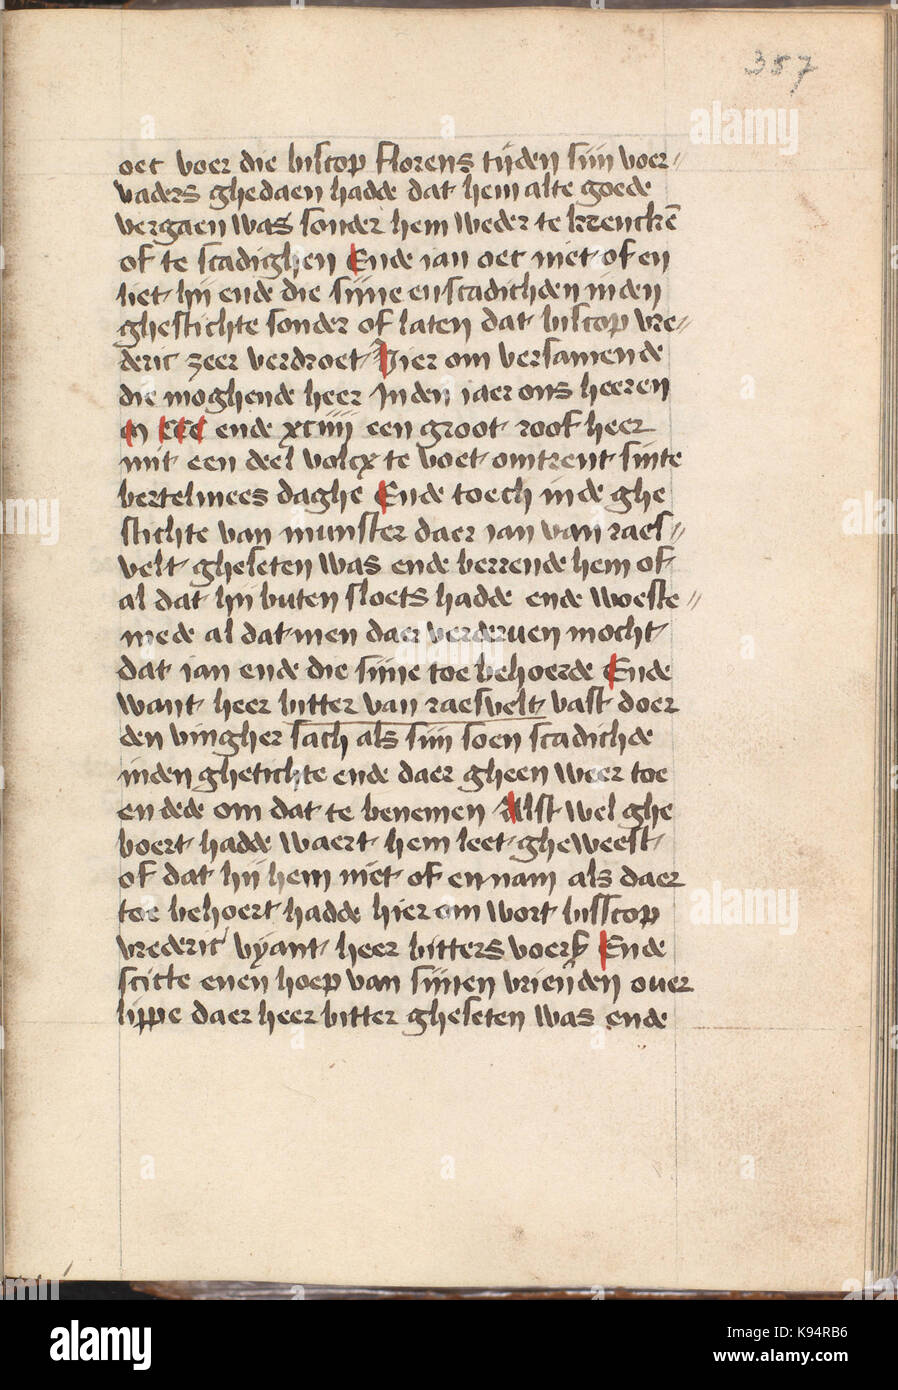 357
oec voer die biscop florens tijden sijn voer//
vaders ghedaen hadde dat hem alte goede
vergaen was sonder hem weder te krenckē
of te scadighen Ende ian oec niet of en
liet hij ende die sijne en scadichden inden
ghestichte sonder of laten dat biscop vre//
deric zeer verdroet Hier om versamende
die moghende heer Inden iaer ons heeren
m ccc ende xciiij een groot roof heer
mit een deel volcx te voet omtrent sinte
bertelmees daghe Ende toech inde ghe
stichte van munster daer ian van raes//
velt gheseten was ende berrende hem of
al dat hij buten sloets hadde ende woeste//
mede al dat men daer verderuen mocht
dat ian ende die sijne toe behoerde Ende
want heer bitter van raesvelt vast doer
den vingher sach als sijn soen scadichde
inden ghetichte ende daer gheen weer toe
en dede om dat te benemen Alst wel ghe
boert hadde waert hem leet gheweest
of dat hij hem niet of en nam als daer
toe behoert hadde hier om wort bisscop
vrederic vyant heer bitters voers Ende
scicte enen hoep van sijnen vrienden over
lippe daer heer bitter gheseten was ende
alamy
Image ID: K94RB6
www.alamy.com